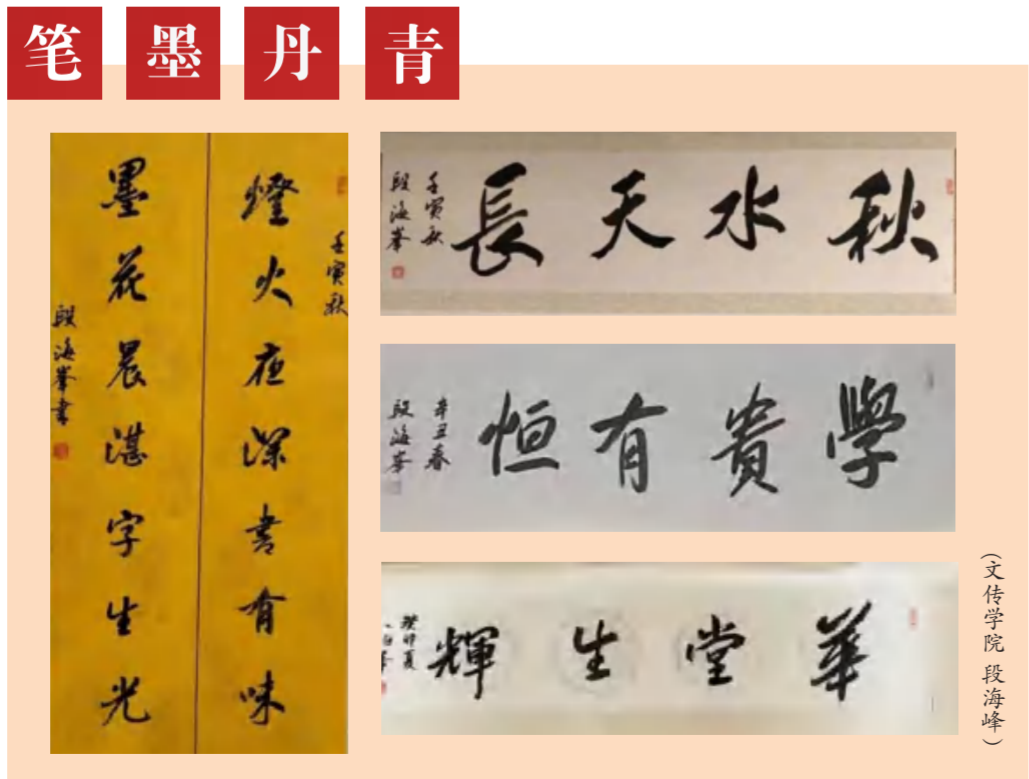 笔墨丹青
壬寅秋
燈火夜深書有味
墨花晨湛字生光
段海峯書
秋水天長
壬寅秋
段海峯
學貴有恒
辛丑春
段海峯
華堂生輝
癸卯夏
(文传学院 段海峰)